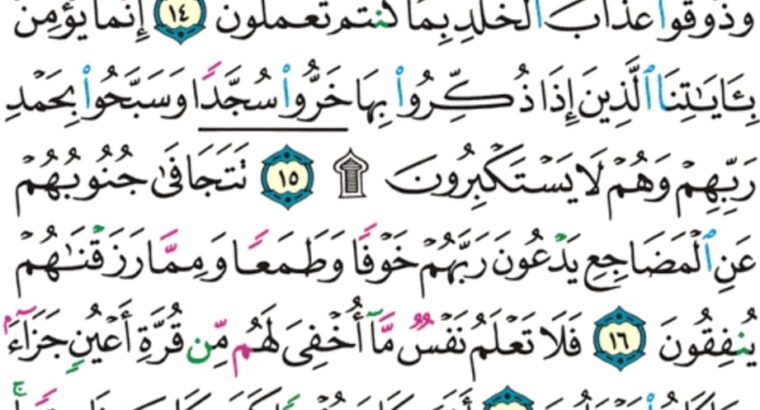 وَذُوقُوا۟ عَذَابَ ٱلْخُلْدِ بِمَا كُنتُمْ تَعْمَلُونَ ١٤ إِنَّمَا يُؤْمِنُ
بِـَٔايَـٰتِنَا ٱلَّذِينَ إِذَا ذُكِّرُوا۟ بِهَا خَرُّوا۟ سُجَّدًا وَسَبَّحُوا۟ بِحَمْدِ
رَبِّهِمْ وَهُمْ لَا يَسْتَكْبِرُونَ ۩ ١٥ تَتَجَافَىٰ جُنُوبُهُمْ
عَنِ ٱلْمَضَاجِعِ يَدْعُونَ رَبَّهُمْ خَوْفًا وَطَمَعًا وَمِمَّا رَزَقْنَـٰهُمْ
يُنفِقُونَ ١٦ فَلَا تَعْلَمُ نَفْسٌ مَّآ أُخْفِىَ لَهُم مِّن قُرَّةِ أَعْيُنٍ جَزَآءًۢ